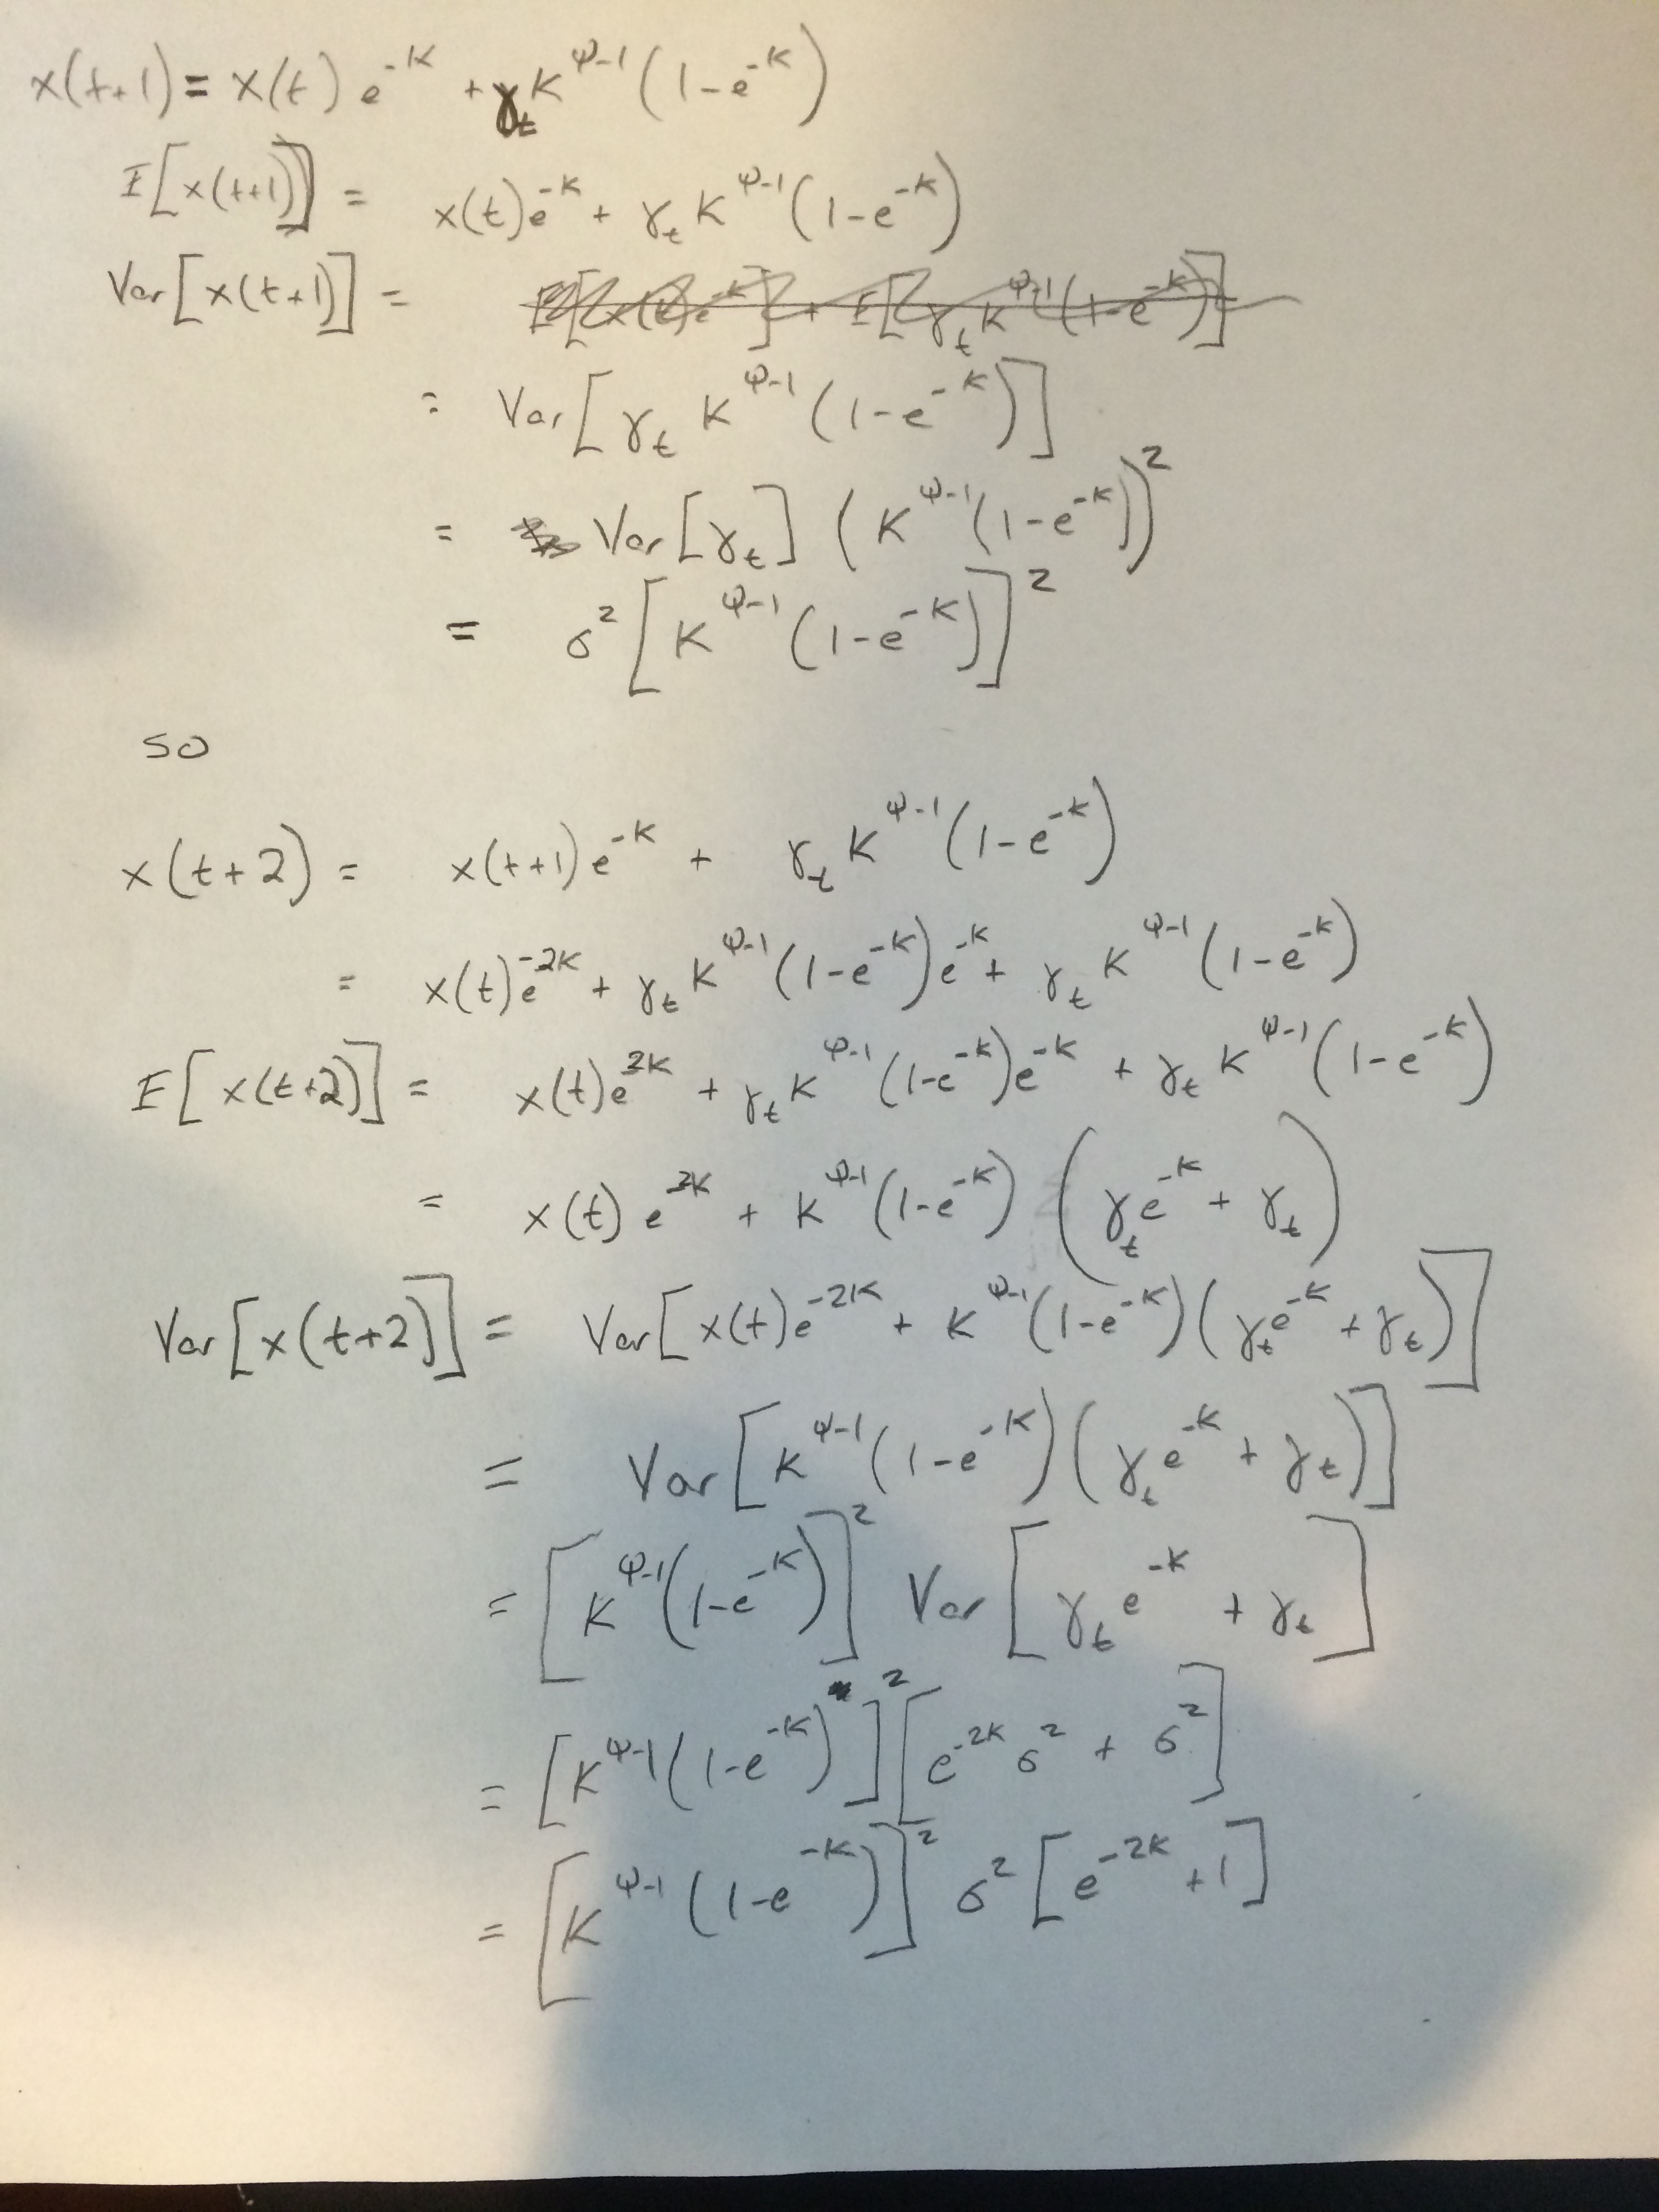 x(t+1) = x(t) e^{-K} + γ_t K^{φ-1} (1-e^{-K})
E[x(t+1)] = x(t)e^{-K} + γ_t K^{φ-1}(1-e^{-K})
Var[x(t+1)] = E[x(t)e^{-K}] + E[γ_t K^{φ-1}(1-e^{-K})]
= Var[γ_t K^{φ-1}(1-e^{-K})]
= Var[γ_t] (K^{φ-1}(1-e^{-K}))^2
= σ^2 [K^{φ-1}(1-e^{-K})]^2
so
x(t+2) = x(t+1)e^{-K} + γ_t K^{φ-1}(1-e^{-K})
= x(t)e^{-2K} + γ_t K^{φ-1}(1-e^{-K})e^{-K} + γ_t K^{φ-1}(1-e^{-K})
E[x(t+2)] = x(t)e^{2K} + γ_t K^{φ-1}(1-e^{-K})e^{-K} + γ_t K^{φ-1}(1-e^{-K})
= x(t) e^{2K} + K^{φ-1}(1-e^{-K}) (γ_t e^{-K} + γ_t)
Var[x(t+2)] = Var[x(t)e^{-2K} + K^{φ-1}(1-e^{-K})(γ_t e^{-K} + γ_t)]
= Var[K^{φ-1}(1-e^{-K})(γ_t e^{-K} + γ_t)]
= [K^{φ-1}(1-e^{-K})]^2 Var[γ_t e^{-K} + γ_t]
= [K^{φ-1}(1-e^{-K})]^2 [e^{-2K} σ^2 + σ^2]
= [K^{φ-1}(1-e^{-K})]^2 σ^2 [e^{-2K} + 1]